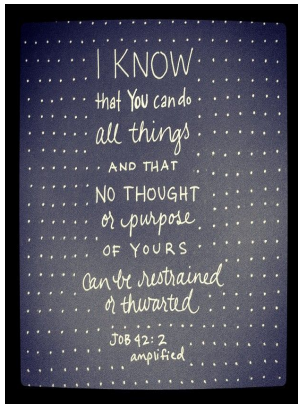 I KNOW
that You can do
all things
AND THAT
NO THOUGHT
or purpose
OF YOURS
can be restrained
or thwarted
JOB 42:2
amplified